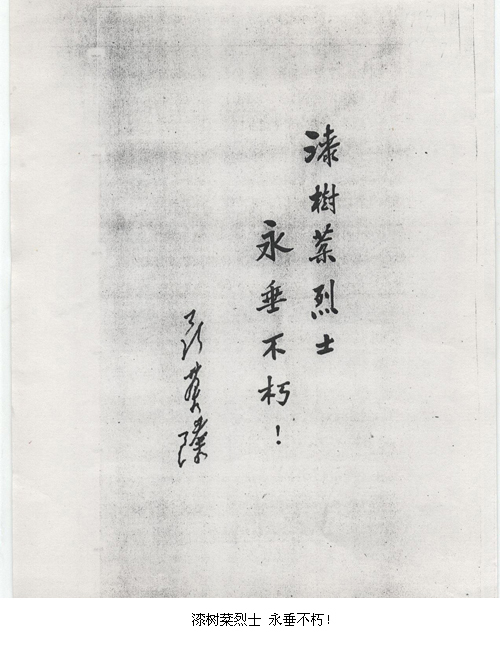 漆樹棻烈士
永垂不朽！
聂荣臻
漆树棻烈士 永垂不朽！